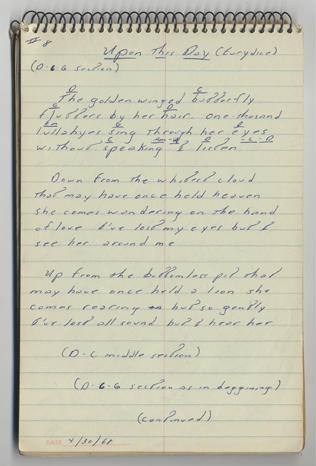 # 8
Upon This Day (Eurydice)
(D-G-G section)
D C
The golden-winged butterfly
G D
flutters by her hair one-thousand
Em G C
lullabyes sing through her eyes
without speaking I listen
Down from the whitest cloud
that may have once held heaven
she comes wandering on the hand
of love I've lost my eyes but I
see her around me
Up from the bottomless pit that
may have once held a lion she
comes roaring but so gently
I've lost all sound but I hear her
(D-C middle section)
(D-G-G section as in beggining)
(continued)
DATE 4/30/68